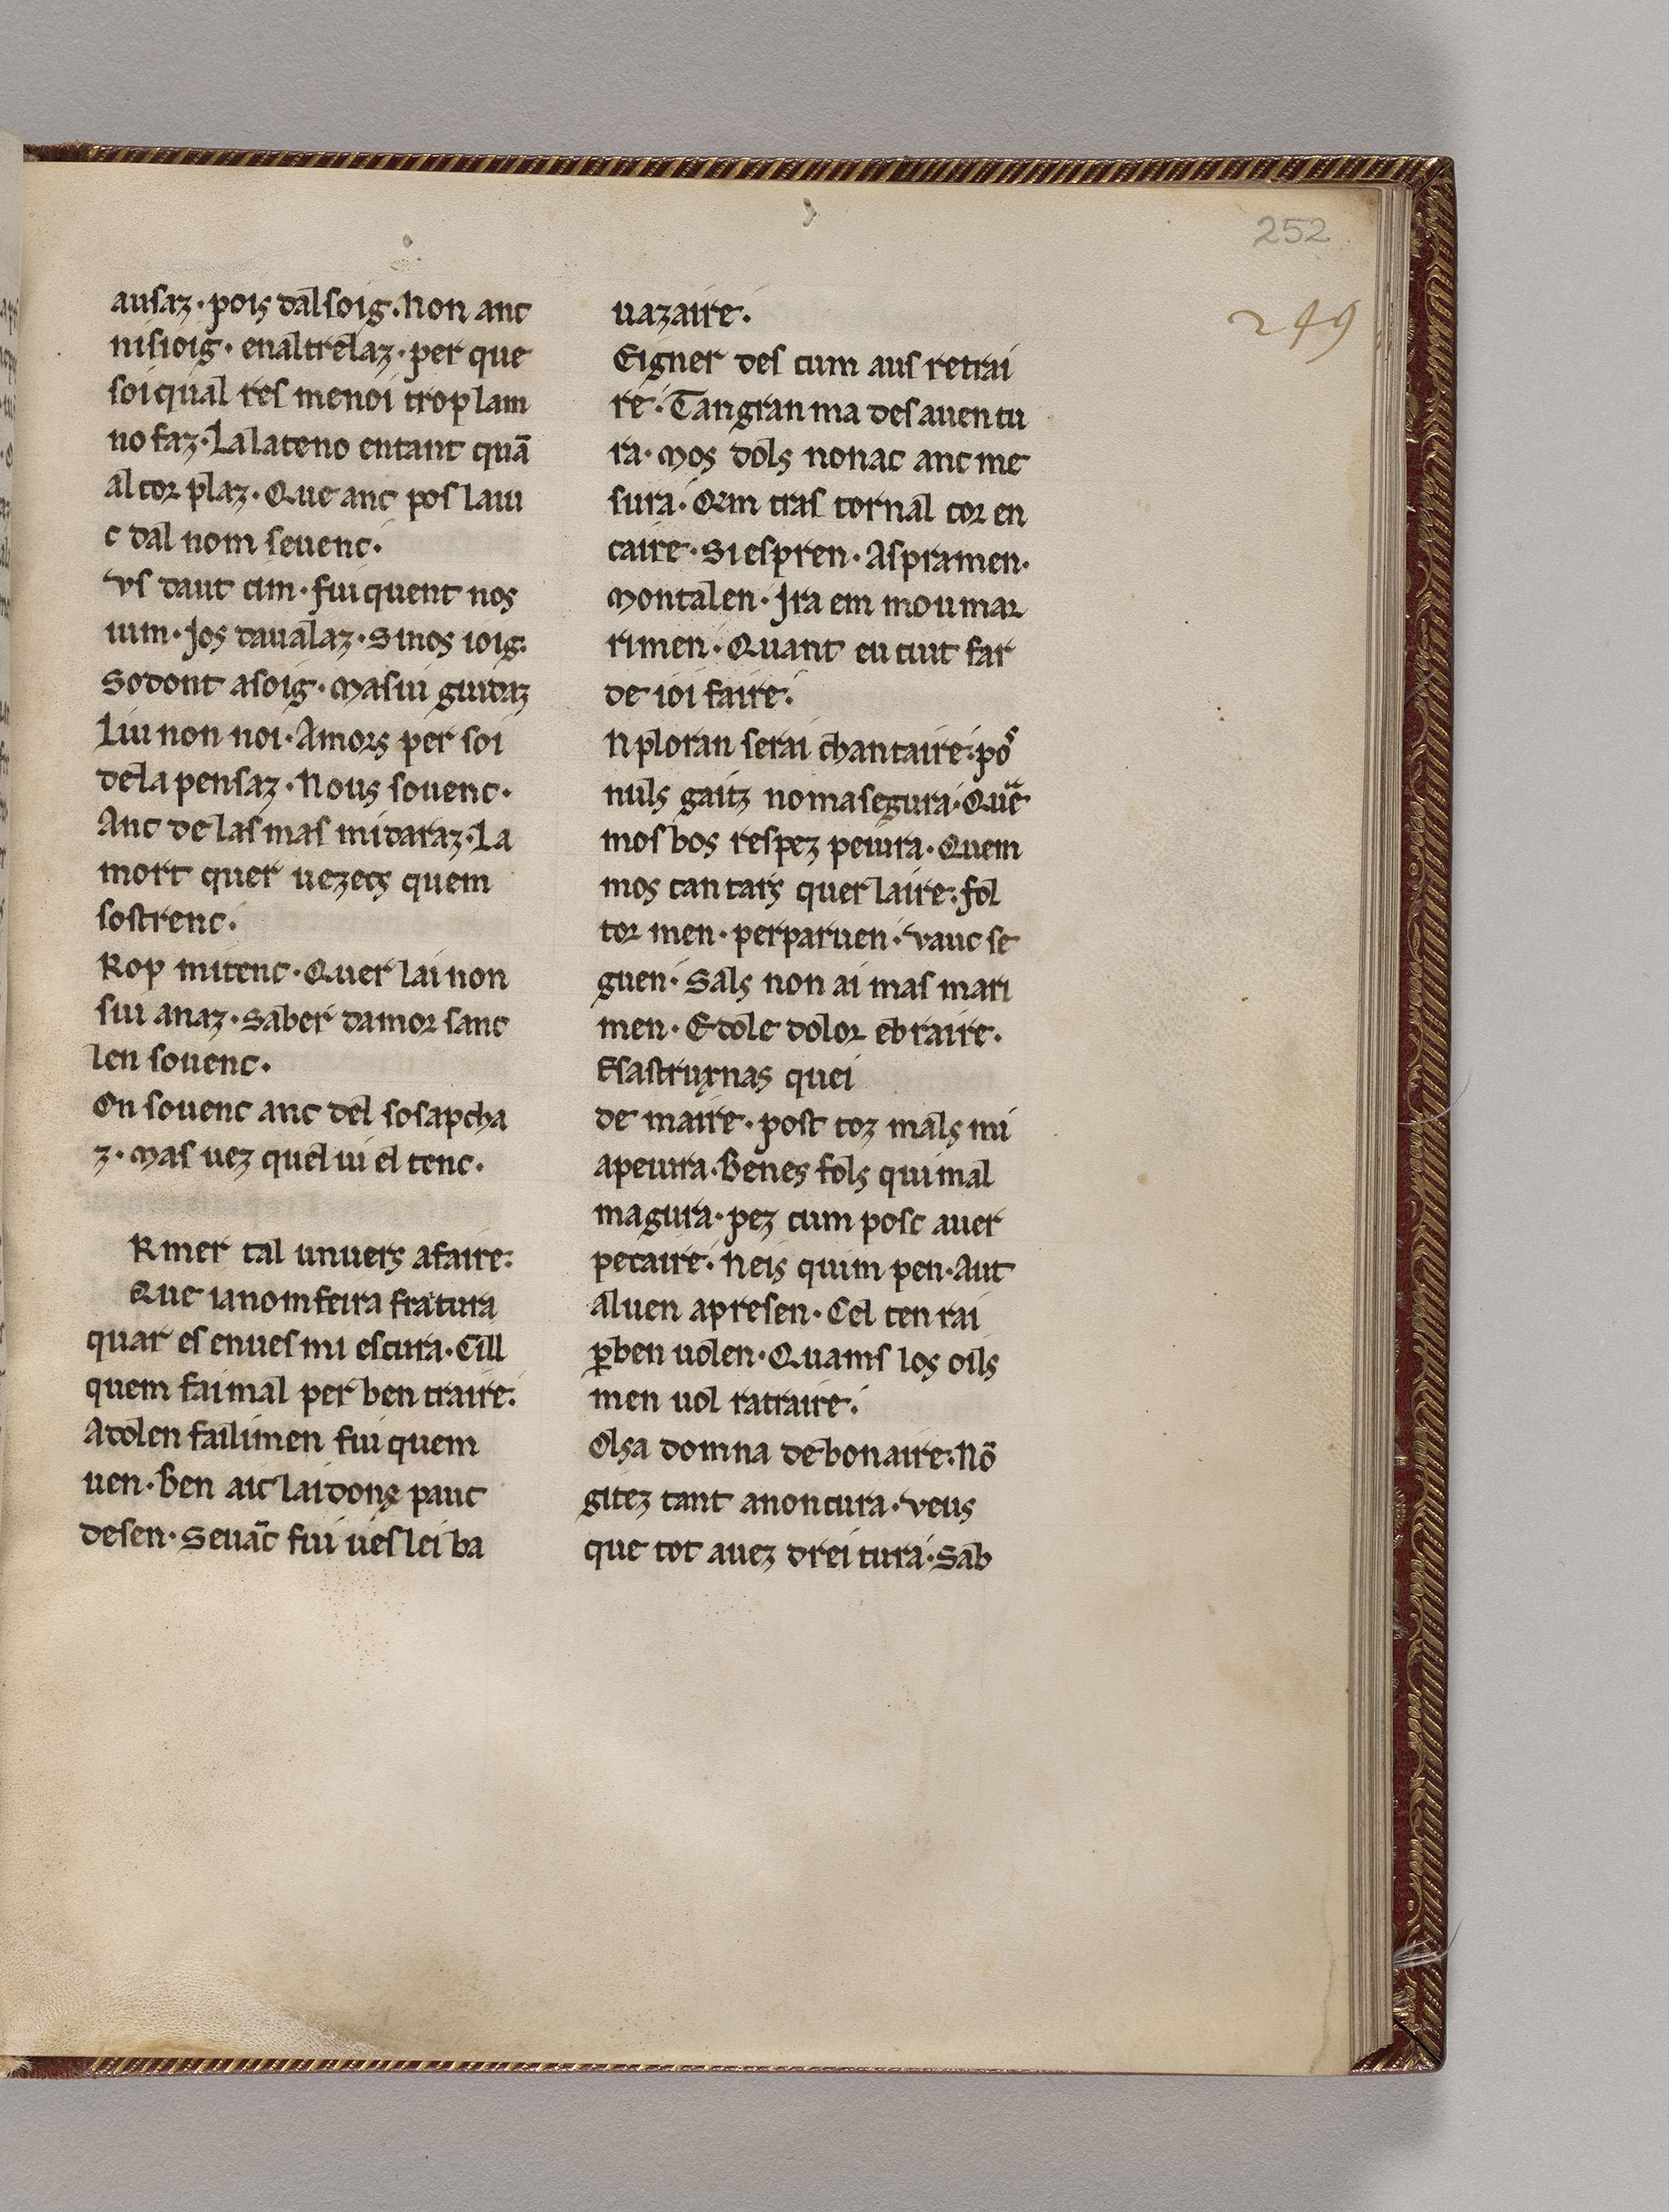 252
249
ausaz · pois dalsoig · Non anc
nisioig · enaltrelaz · per que
soiqual res menoi trop lam
no faz · Lalateno entant quā
al cor plaz · Que anc pos laui
c dal nom seuenc ·
vs daut cim · fui quent nos
uim · Jos daualaz · Sinos ioig ·
Sodont asoig · Masiui guidaz
Liu non noi · Amors per soi
dela pensaz · Nous souenc ·
Anc de las mas midaraz · La
mort quer uezets quem
sostrenc ·
Rop mitenc · Quer lai non
sui anaz · Saber damor sanc
len souenc ·
On souenc anc del sosapcha
z · Mas uez quel ui el tenc ·
R mer tal unuers afaire :
Que ianomfeira fratura
quar es enues mi escura · Cill
quem fai mal per ben traire :
Adolen failimen fui quem
uen · Ben aic lai dons pauc
desen · Seuāc fui ues lei ba
uazaire ·
Eigner des cum aus retrai
re · Tan gran ma desauentu
ra · Mos dols nonac anc me
sura · Qim tras tornal cor en
caire · Si espren · Aspramen ·
Montalen · Ira em mou mar
rimen · Quant eu cuit far
de ioi faire ·
N ploran serai chantaire : pos
nuls gaitz nomasegura · Quē
mos bos respez peiura · Quem
mos cantars quer laire : fol
tor men · perparuen · vauc se
guen · Sals non ai mas mari
men · E dole dolor ebraire ·
Esastrucnas quei
de maire · post toz mals mi
apeiura · Benes fols qui mal
magura · pez cum posc auer
pecaire · Neis quim pen · Aut
aluen apresen · Cel ten rai
ꝑben uolen · Quams los oils
men uol ratraire ·
Olsa domna debonaire : Nō
gitez tant anoncura · veus
que tot auez dreitura · Sab